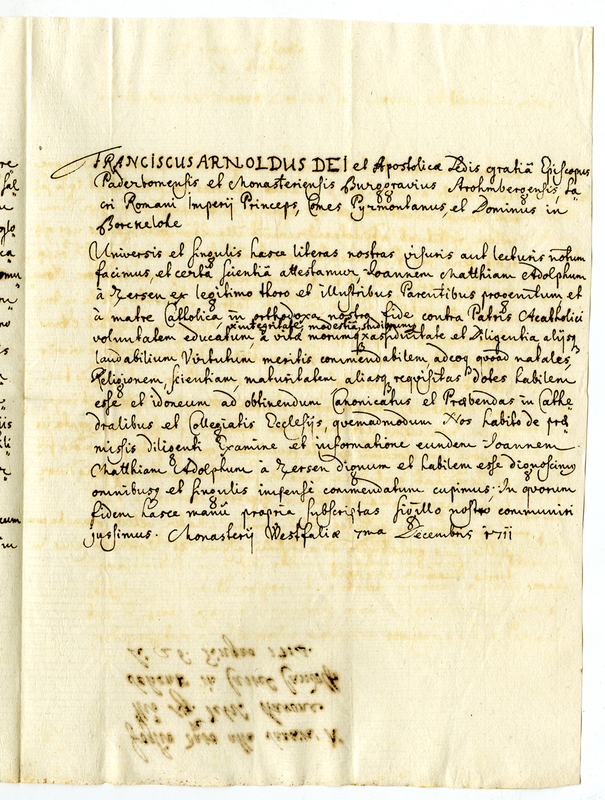 FRANCISCUS ARNOLDUS DEI et Apostolicæ Sedis gratiâ Episcopus
Paderbornensis et Monasteriensis Burggravius Strohmbergensis, Sa-
cri Romani Imperij Princeps, Comes Pyrmontanus, et Dominus in
Borckelohe
Universis et singulis hasce literas nostras visuris aut lecturis notum
facimus, et certâ scientiâ attestamur Joannem Matthiam Adolphum
à Zersen ex legitimo thoro et illustribus Parentibus progenitum et
à matre Catholicâ in orthodoxa nostra fide contra Patris Acatholici
x integritate, modestia
voluntatem educatum à vitæ morumq x ac pietate et Diligentia alijsq
laudabilium Virtutum meritis commendabilem adeoq quoad natales,
Religionem, scientiam maturitatem aliasq requisitas dotes habilem
esse et idoneum ad obtinendum Canonicatus et Præbendas in Cathe-
dralibus et Collegiatis Ecclesijs, quemadmodum Nos habito de præ-
missis diligenti Examine et informatione eundem Joannem
Matthiam Adolphum à Zersen dignum et habilem esse dignoscimus
omnibusq et singulis impensè commendatum cupimus. In quorum
fidem hasce manu propria subscriptas sigillo nostro communiri
jussimus. Monasterij Westfaliæ 7ma Decembris 1711